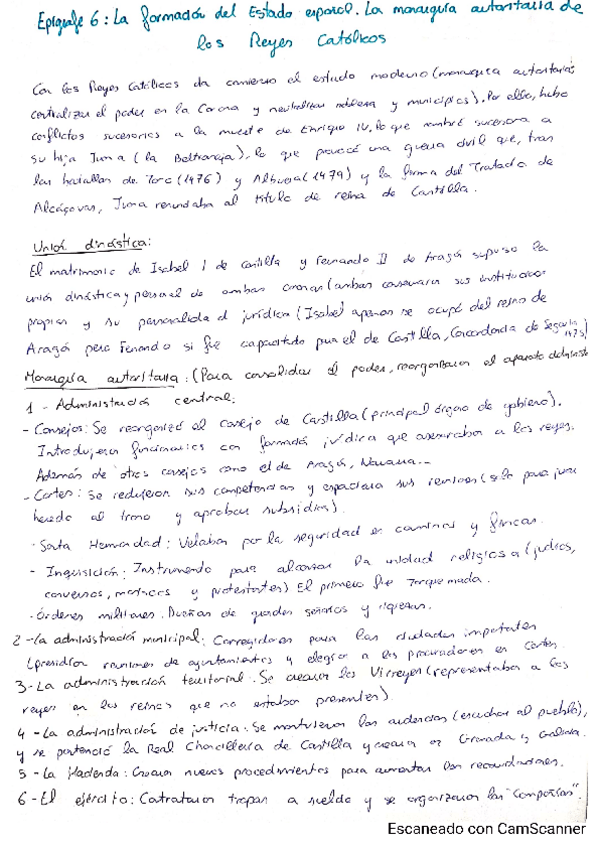 Epígrafe 6: La formación del Estado español. La monarquía autoritaria de
los Reyes Católicos
Con los Reyes Católicos da comienzo el estado moderno (monarquía autoritaria:
centralizar el poder en la Corona y neutralizar nobleza y municipios). Por ello, hubo
conflictos sucesorios a la muerte de Enrique IV, lo que nombró sucesora a
su hija Juana (la Beltraneja), lo que provocó una guerra civil que, tras
las batallas de Toro (1476) y Albuera (1479) y la firma del Tratado de
Alcáçovas, Juana renunciaba al título de reina de Castilla.
Unión dinástica:
El matrimonio de Isabel I de Castilla y Fernando II de Aragón supuso la
unión dinástica y personal de ambas coronas (ambas conservaron sus instituciones
propias y su personalidad jurídica (Isabel apenas se ocupó del reino de
Aragón pero Fernando si fue capacitado para el de Castilla, Concordancia de Segovia 1475)
Monarquía autoritaria: (Para consolidar el poder, reorganizaron el aparato administ
1 - Administración central:
- Consejos: Se reorganizó el Consejo de Castilla (principal órgano de gobierno).
Introdujeron funcionarios con formación jurídica que asesoraban a los reyes.
Además de otros consejos como el de Aragón, Navarra...
- Cortes: Se redujeron sus competencias y espaciaron sus reuniones (solo para jurar
heredero al trono y aprobar subsidios).
- Santa Hermandad: Velaban por la seguridad en caminos y fincas.
- Inquisición: Instrumento para alcanzar la unidad religiosa (judíos,
conversos, moriscos y protestantes) El primero fue Torquemada.
- Órdenes militares. Dueñas de grandes señoríos y riquezas.
2 - La administración municipal: Corregidores para las ciudades importantes
(presidían reuniones de ayuntamientos y elegían a los procuradores en Cortes.
3 - La administración territorial. Se crearon los Virreyes (representaban a los
reyes en los reinos que no estaban presentes).
4 - La administración de justicia: Se mantuvieron las audiencias (escuchar al pueblo),
y se potenció la Real Chancillería de Castilla y crearon en Granada y Galicia.
5 - La Hacienda: Crearon nuevos procedimientos para aumentar las recaudaciones.
6 - El ejército: Contrataron tropas a sueldo y se organizaron las "Compañías".
Escaneado con CamScanner